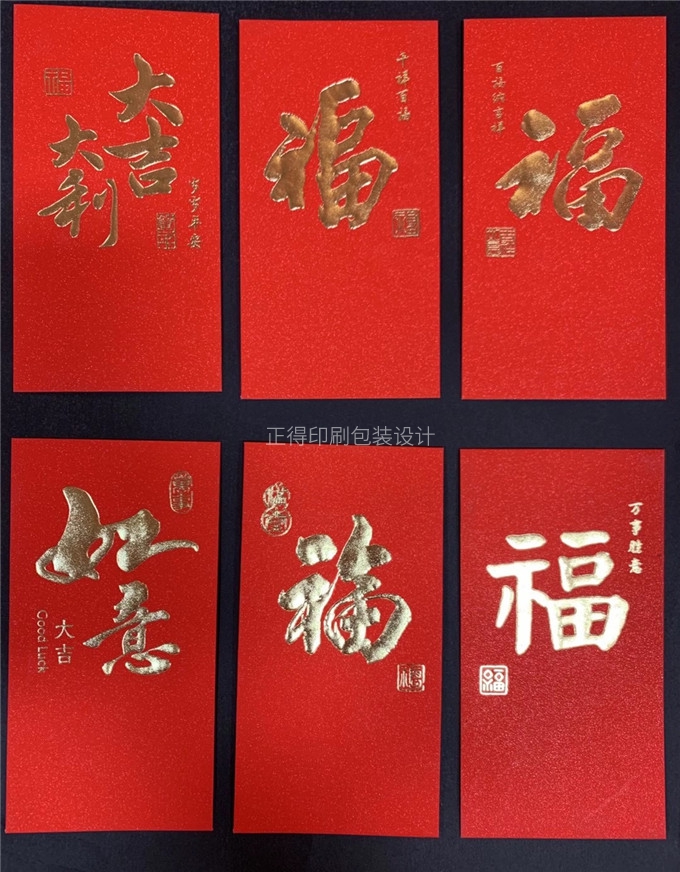 福
大吉
大利
岁岁平安
千福百福
福
百福纳吉祥
福
正得印刷包装设计
萬事
如意
大吉
Good Luck
福
福
万事胜意
福
福